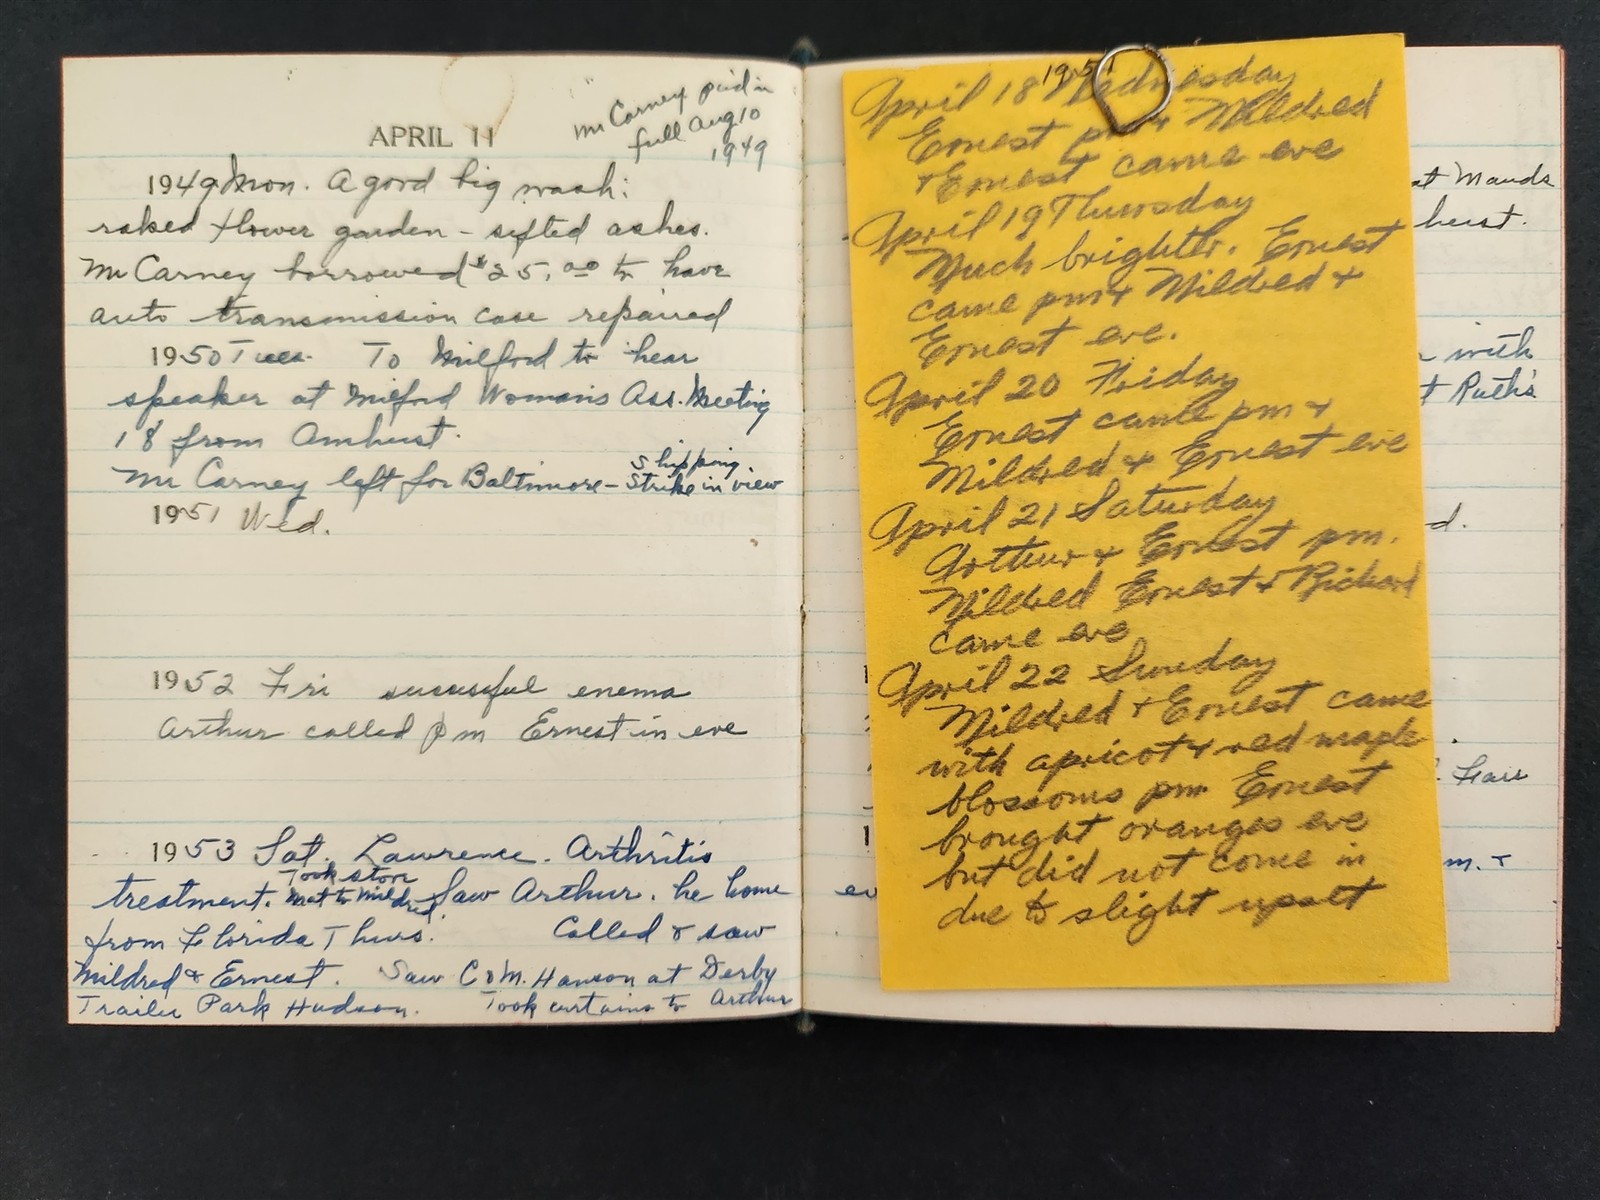 Mr Carney paid in
full Aug 10
1949
APRIL 11
1949 Mon. A good big wash:
raked flower garden - sifted ashes.
Mr Carney borrowed $25.00 to have
auto transmission case repaired
1950 Tues. To Milford to hear
speaker at Milford Womans Ass. Meeting
18 from Amhurst.
Shipping
Mr Carney left for Baltimore - Strike in view
1951 Wed.
1952 Fri successful enema
Arthur called pm Ernest in eve
1953 Sat. Lawrence. Arthritis
Took
treatment. Saw Arthur. he home
mat to Mildred.
from Florida Thurs. Called & saw
Mildred & Ernest. Saw C & M. Hanson at Derby
Trailer Park Hudson. Took curtains to Arthur
1951
April 18 Wednesday
Ernest pm & Mildred
& Ernest came eve
April 19 Thursday
Much brighter. Ernest
came pm & Mildred &
Ernest eve.
April 20 Friday
Ernest came pm &
Mildred & Ernest eve
April 21 Saturday
Arthur & Ernest pm.
Mildred Ernest & Richard
came eve
April 22 Sunday
Mildred & Ernest came
with apricot & red maple
blossoms pm Ernest
brought oranges eve
but did not come in
due to slight upset
at Mauds
hurst.
with
Ruth's
d.
m. &
ev